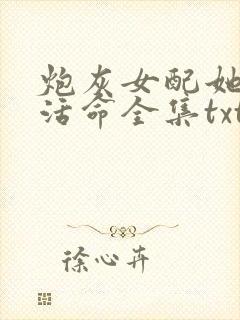 炮灰女配她
活命全集txt
徐心卉